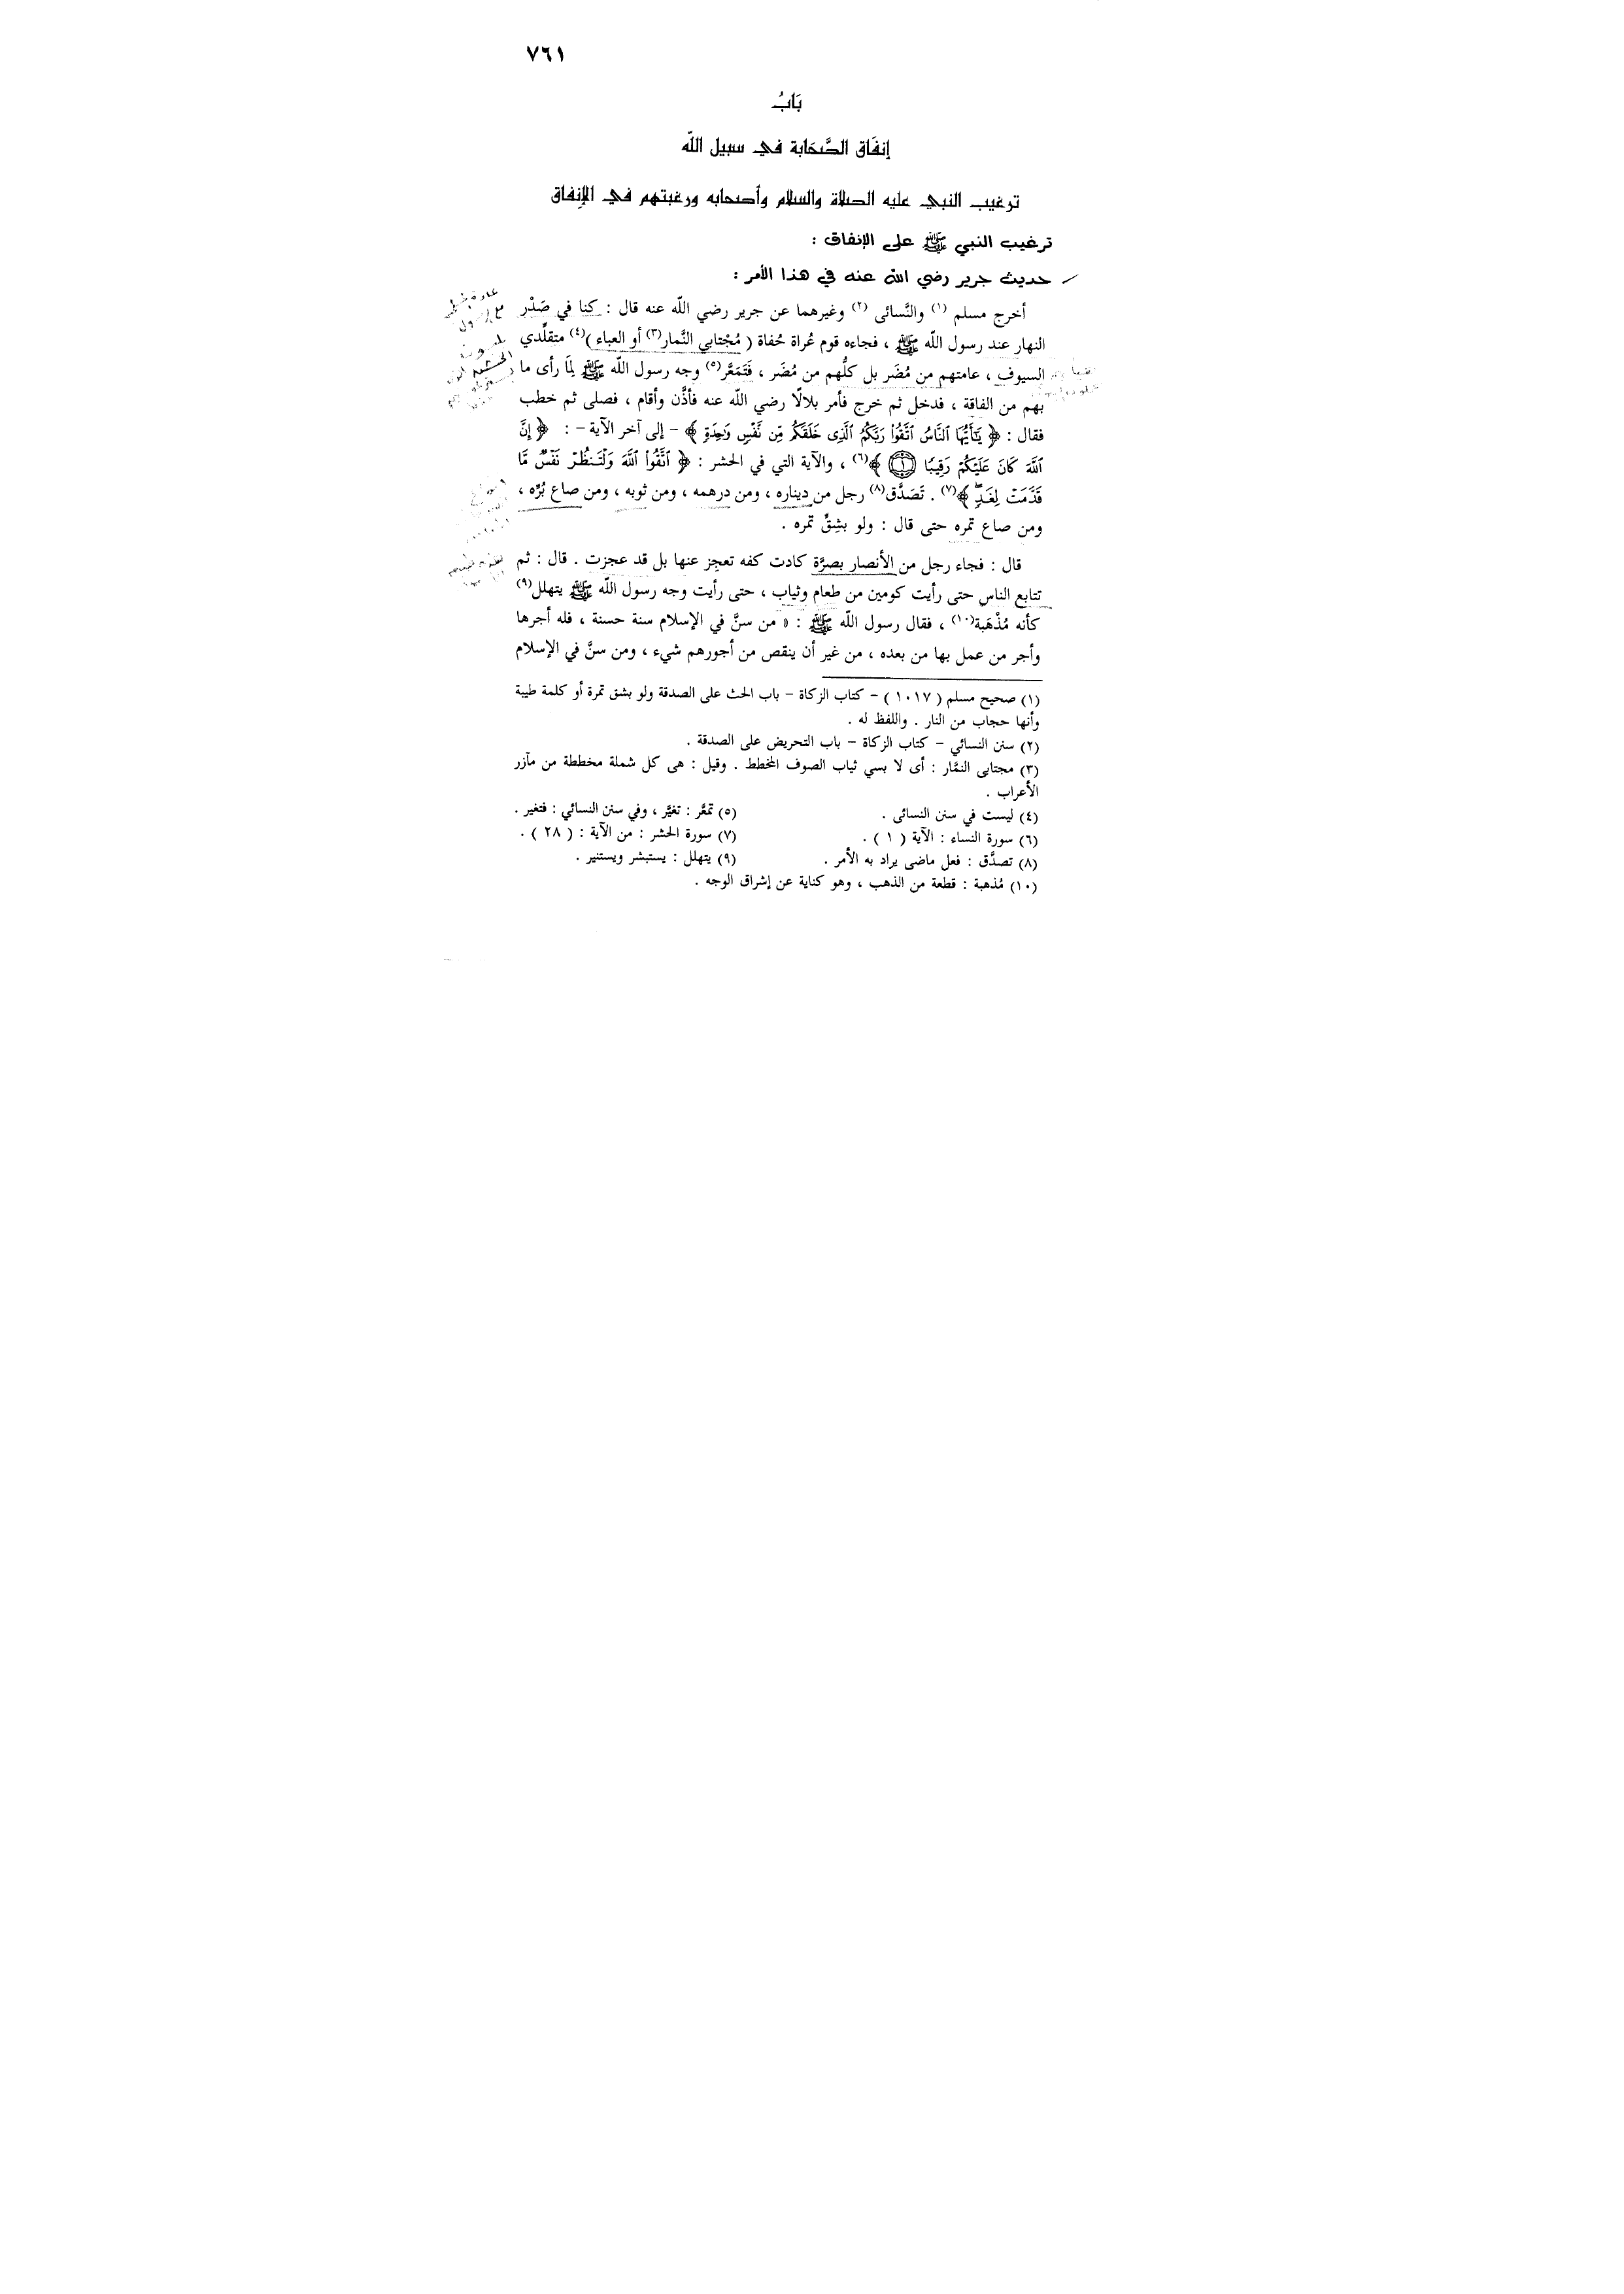 ٧٦١
بَابُ
إنفَاق الصَّحَابة في سبيل اللّه
ترغيب النبي عليه الصلاة والسلام وأصحابه ورغبتهم في الإنِفاق
ترغيب النبي ﷺ على الإنفاق :
حديث جرير رضي الله عنه في هذا الأمر :
أخرج مسلم (١) والنَّسائى (٢) وغيرهما عن جرير رضي اللّه عنه قال : كنا في صَدْر
النهار عند رسول اللّه ﷺ ، فجاءه قوم عُراة حُفاة ( مُجْتابي النَّمار(٣) أو العباء )(٤) متقلِّدي
السيوف ، عامتهم من مُضَر بل كلُّهم من مُضَر ، فَتَمَعَّر(٥) وجه رسول اللّه ﷺ لِمَا رأى ما
بهم من الفاقة ، فدخل ثم خرج فأمر بلالًا رضي اللّه عنه فأذَّن وأقام ، فصلى ثم خطب
فقال : ﴿ يَٰٓأَيُّهَا ٱلنَّاسُ ٱتَّقُوا۟ رَبَّكُمُ ٱلَّذِى خَلَقَكُم مِّن نَّفْسٍ وَٰحِدَةٍ ﴾ – إلى آخر الآية – : ﴿ إِنَّ
ٱللَّهَ كَانَ عَلَيْكُمْ رَقِيبًا ١ ﴾(٦) ، والآية التي في الحشر : ﴿ ٱتَّقُوا۟ ٱللَّهَ وَلْتَنظُرْ نَفْسٌ مَّا
قَدَّمَتْ لِغَدٍ ۖ ﴾(٧) . تَصَدَّق(٨) رجل من ديناره ، ومن درهمه ، ومن ثوبه ، ومن صاع بُرِّه ،
ومن صاع تمره حتى قال : ولو بشِقِّ تمره .
قال : فجاء رجل من الأنصار بصرَّة كادت كفه تعجِز عنها بل قد عجزت . قال : ثم
تتابع الناس حتى رأيت كومين من طعام وثياب ، حتى رأيت وجه رسول اللّه ﷺ يتهلل(٩)
كأنه مُذْهَبة(١٠) ، فقال رسول اللّه ﷺ : « من سنَّ في الإسلام سنة حسنة ، فله أجرها
وأجر من عمل بها من بعده ، من غير أن ينقص من أجورهم شيء ، ومن سنَّ في الإسلام
(١) صحيح مسلم ( ١٠١٧ ) – كتاب الزكاة – باب الحث على الصدقة ولو بشق تمرة أو كلمة طيبة
وأنها حجاب من النار . واللفظ له .
(٢) سنن النسائي – كتاب الزكاة – باب التحريض على الصدقة .
(٣) مجتابى النمَّار : أى لا بسي ثياب الصوف المخطط . وقيل : هى كل شملة مخططة من مآزر
الأعراب .
(٤) ليست في سنن النسائى .
(٥) تمعَّر : تغيَّر ، وفي سنن النسائي : فتغير .
(٦) سورة النساء : الآية ( ١ ) .
(٧) سورة الحشر : من الآية : ( ٢٨ ) .
(٨) تصدَّق : فعل ماضى يراد به الأمر .
(٩) يتهلل : يستبشر ويستنير .
(١٠) مُذهبة : قطعة من الذهب ، وهو كناية عن إشراق الوجه .